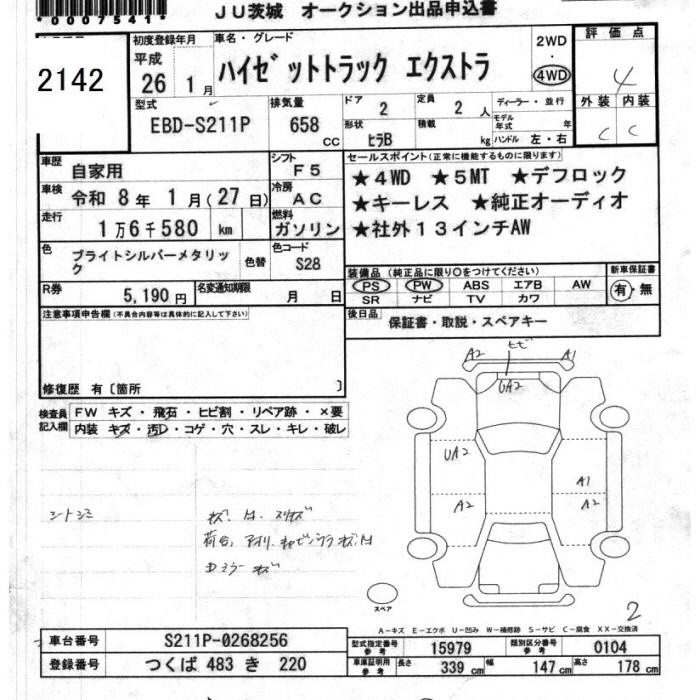 *0007541*
JU茨城 オークション出品申込書
2142
初度登録年月
平成
26年 1月
車名・グレード
ハイゼットトラック エクストラ
2WD
・
4WD
評価点
4
外装 内装
C C
型式
EBD-S211P
排気量
658 cc
ドア
2
定員
2 人
形状
ヒラB
積載
kg
ディーラー・並行
モデル年式 年
ハンドル 左・右
車歴
自家用
シフト
F5
車検
令和 8年 1月(27日)
冷房
AC
走行
1万6千580 km
燃料
ガソリン
色
ブライトシルバーメタリック
色替
色コード
S28
R券
5,190円
名変通知期限
月 日
セールスポイント(正常に機能するものに限ります)
★4WD ★5MT ★デフロック
★キーレス ★純正オーディオ
★社外13インチAW
装備品(純正品に限り○をつけてください)
PS PW ABS エアB AW
SR ナビ TV カワ
新車保証書
有・無
後日品
保証書・取説・スペアキー
注意事項申告欄(不具合内容等は具体的に記入して下さい)
修復歴 有〔箇所 〕
検査員記入欄
FW キズ・飛石・ヒビ割・リペア跡・×要
内装 キズ・汚レ・コゲ・穴・スレ・キレ・破レ
シートシミ
ヒビ
A2
A1
UA2
UA2
A2
A1
A2
スペア
2
A-キズ E-エクボ U-凹み W-補修跡 S-サビ C-腐食 XX-交換済
車台番号
S211P-0268256
登録番号
つくば 483 き 220
型式指定番号
参考
15979
類別区分番号
参考
0104
車庫証明用
参考
長さ
339 cm
幅
147 cm
高さ
178 cm